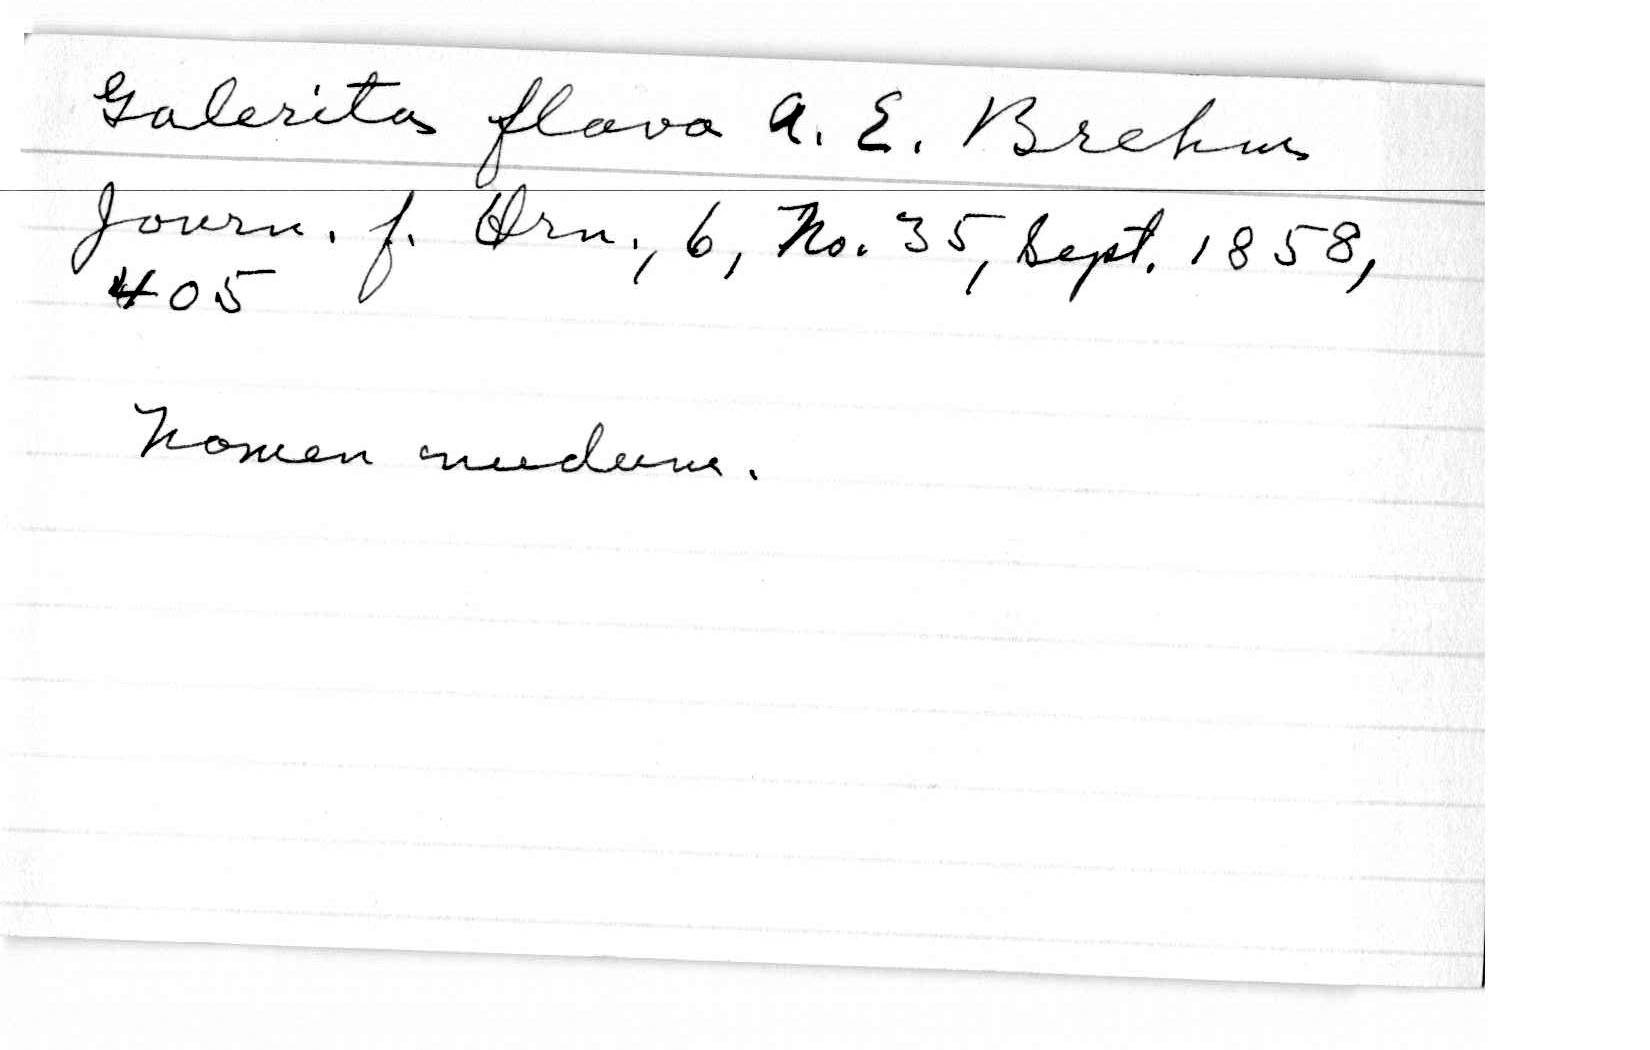 Galerita flava A. E. Brehm
Journ. f. Orn., 6, No. 35, Sept. 1858,
405
Nomen nudum.